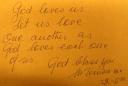 God loves us
let us love
one another as
God loves each one
of us. God bless you
M Teresa mc